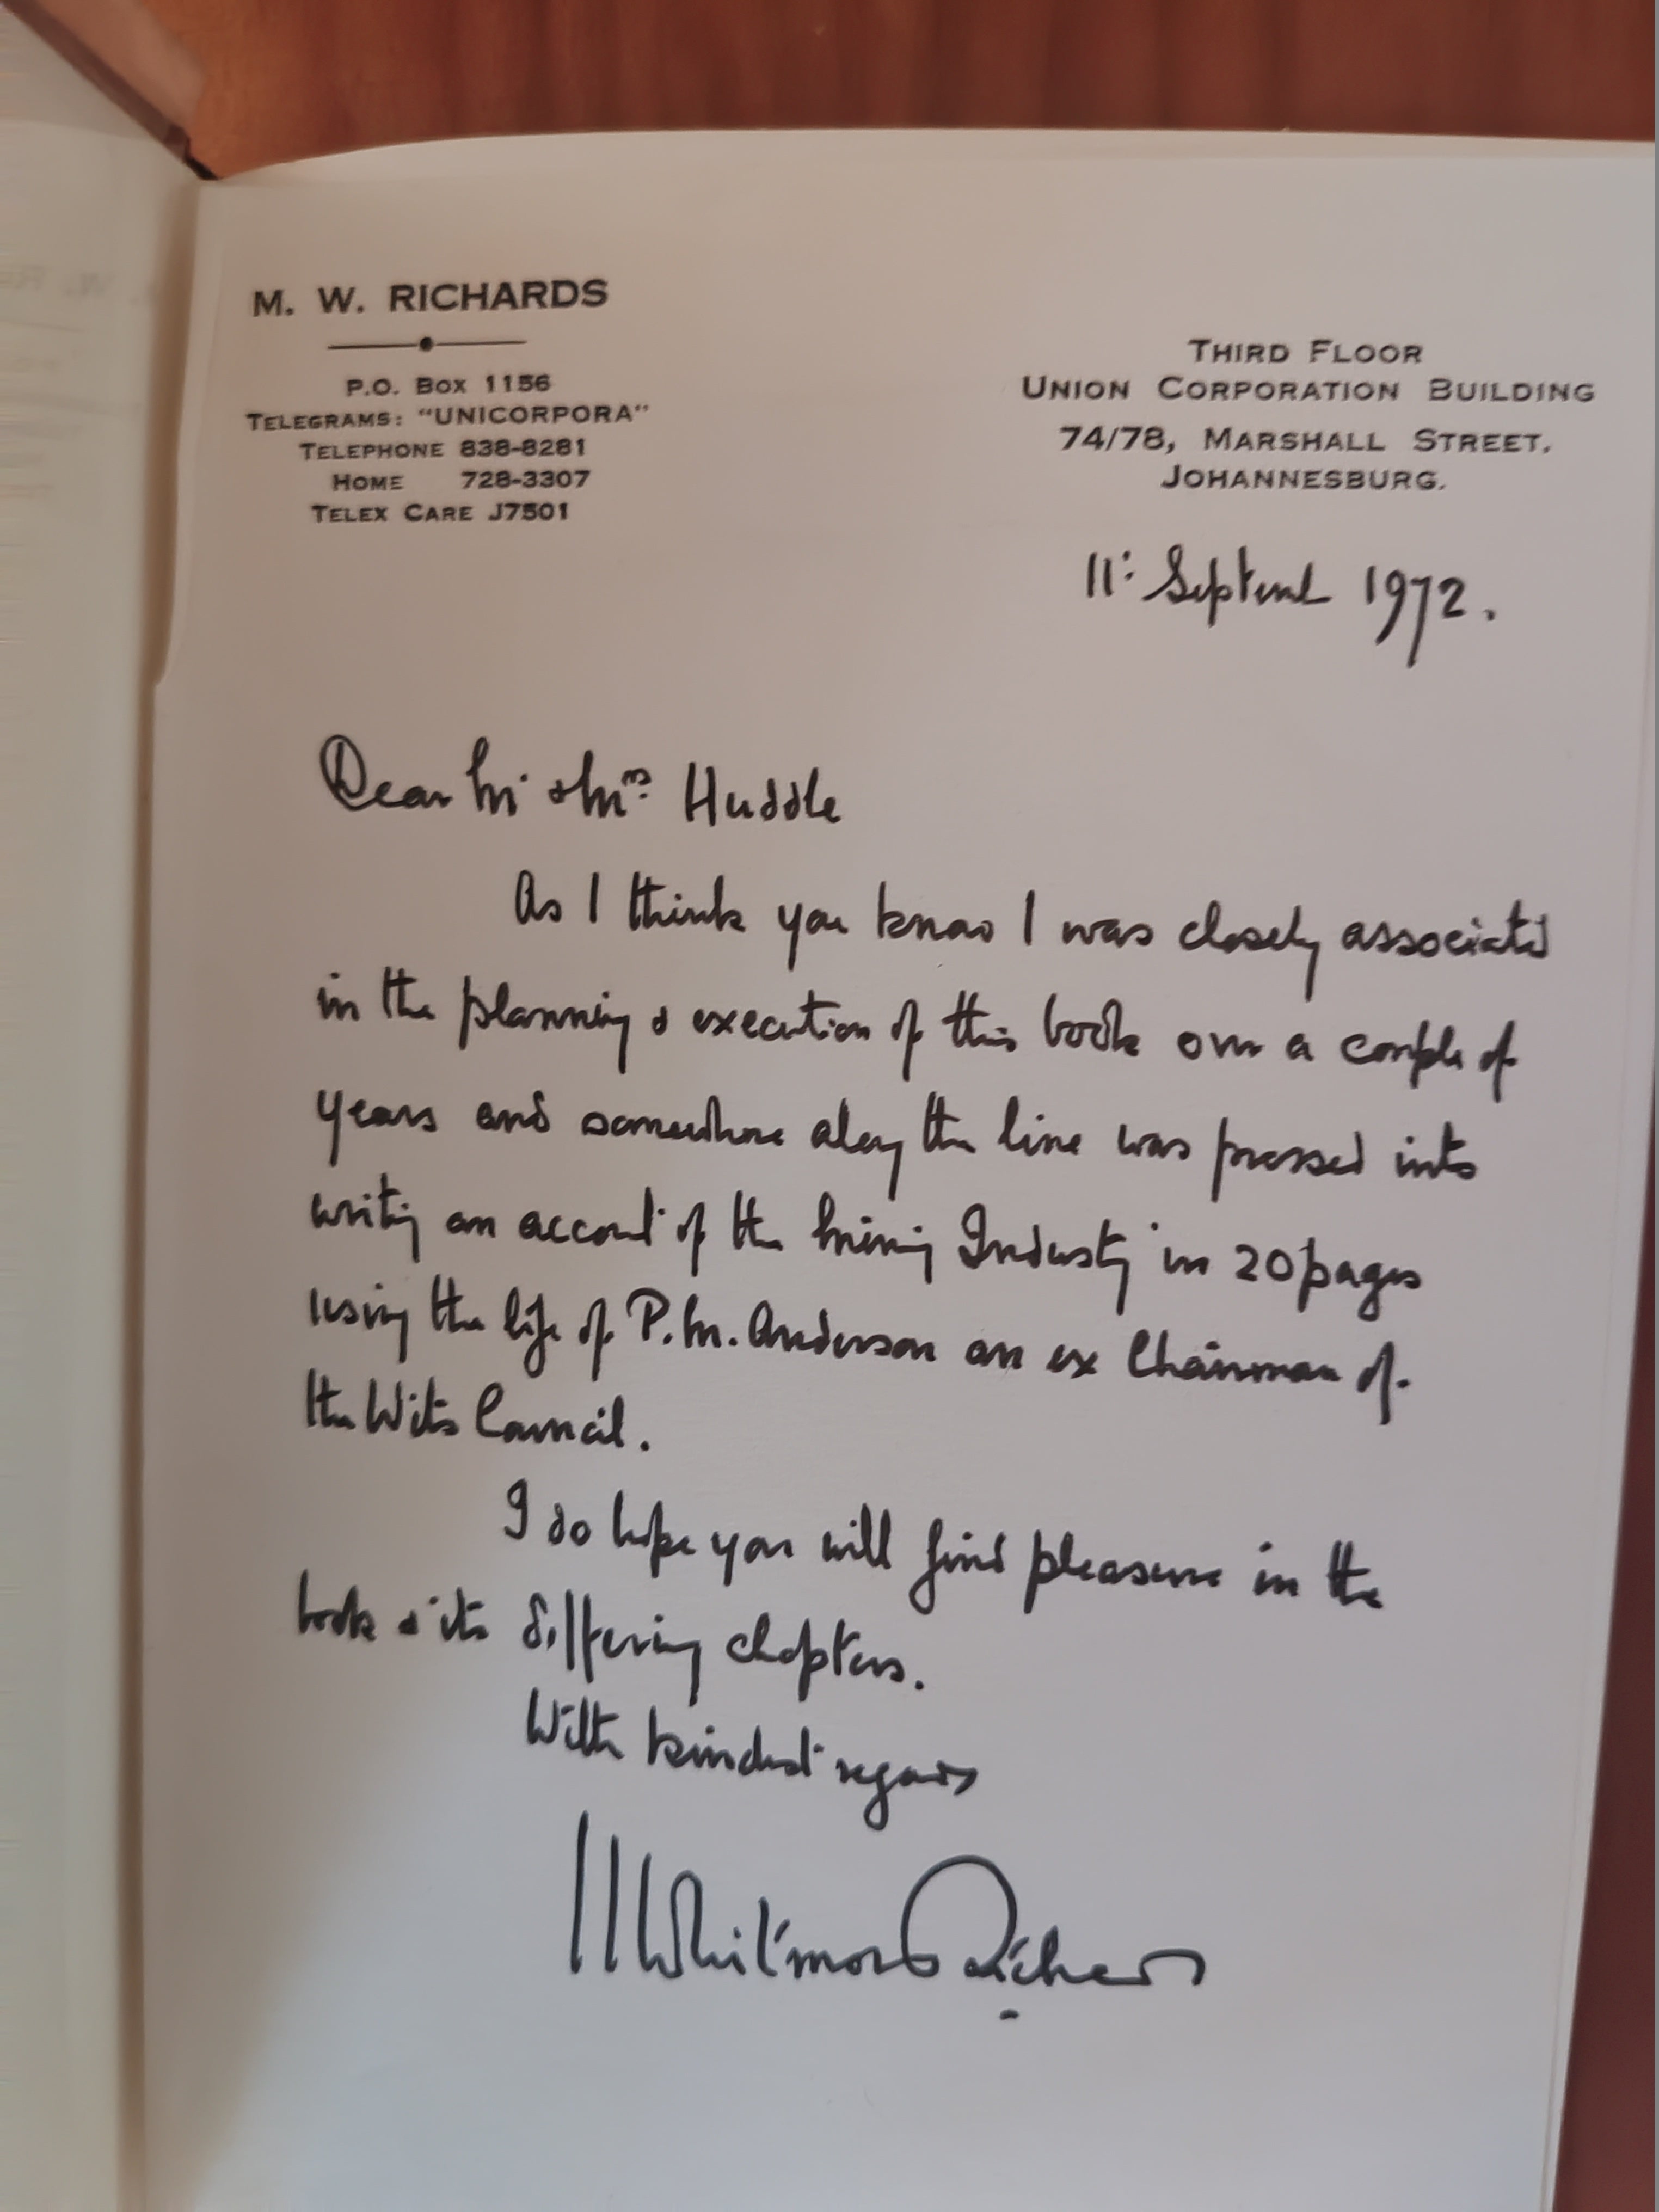 M. W. RICHARDS
P.O. BOX 1156
TELEGRAMS: "UNICORPORA"
TELEPHONE 838-8281
HOME 728-3307
TELEX CARE J7501
THIRD FLOOR
UNION CORPORATION BUILDING
74/78, MARSHALL STREET,
JOHANNESBURG.
11: September 1972.
Dear Mr & Mrs Huddle
As I think you know I was closely associated
in the planning & execution of this book over a couple of
years and somewhere along the line was pressed into
writing an account of the Mining Industry in 20 pages
using the life of P.M. Anderson an ex Chairman of
the Wits Council.
I do hope you will find pleasure in the
book & its differing chapters.
With kindest regards
M Whitmore Richards